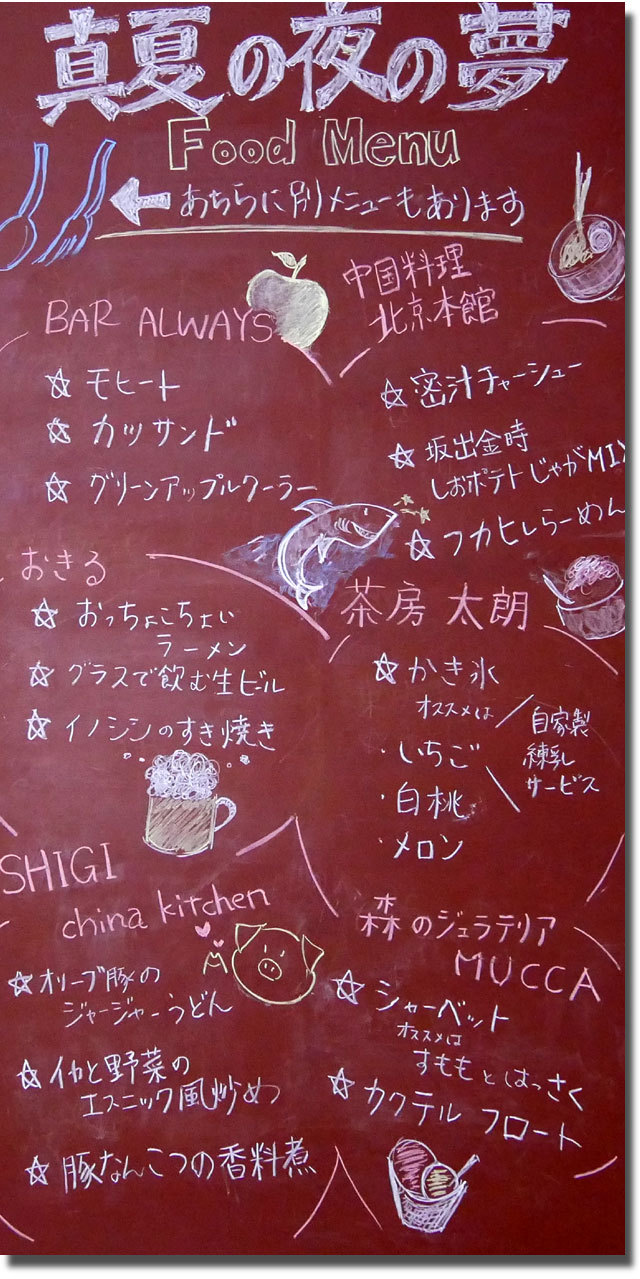 真夏の夜の夢
Food Menu
あちらに別メニューもあります
BAR ALWAYS
☆ モヒート
☆ カツサンド
☆ グリーンアップルクーラー
中国料理
北京本館
☆ 密汁チャーシュー
☆ 坂出金時
しおポテトじゃがMIX
☆ フカヒレらーめん
おきる
☆ おっちょこちょい
ラーメン
☆ グラスで飲む生ビール
☆ イノシシのすき焼き
茶房 太朗
☆ かき氷
オススメは
・いちご
・白桃
・メロン
自家製
練乳
サービス
SHIGI
china kitchen
☆ オリーブ豚の
ジャージャーうどん
☆ イカと野菜の
エスニック風炒め
☆ 豚なんこつの香料煮
森のジェラテリア
MUCCA
☆ シャーベット
オススメは
すももとはっさく
☆ カクテル フロート